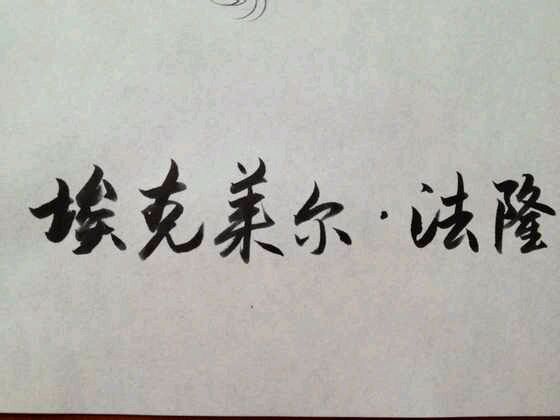 埃克莱尔·法隆